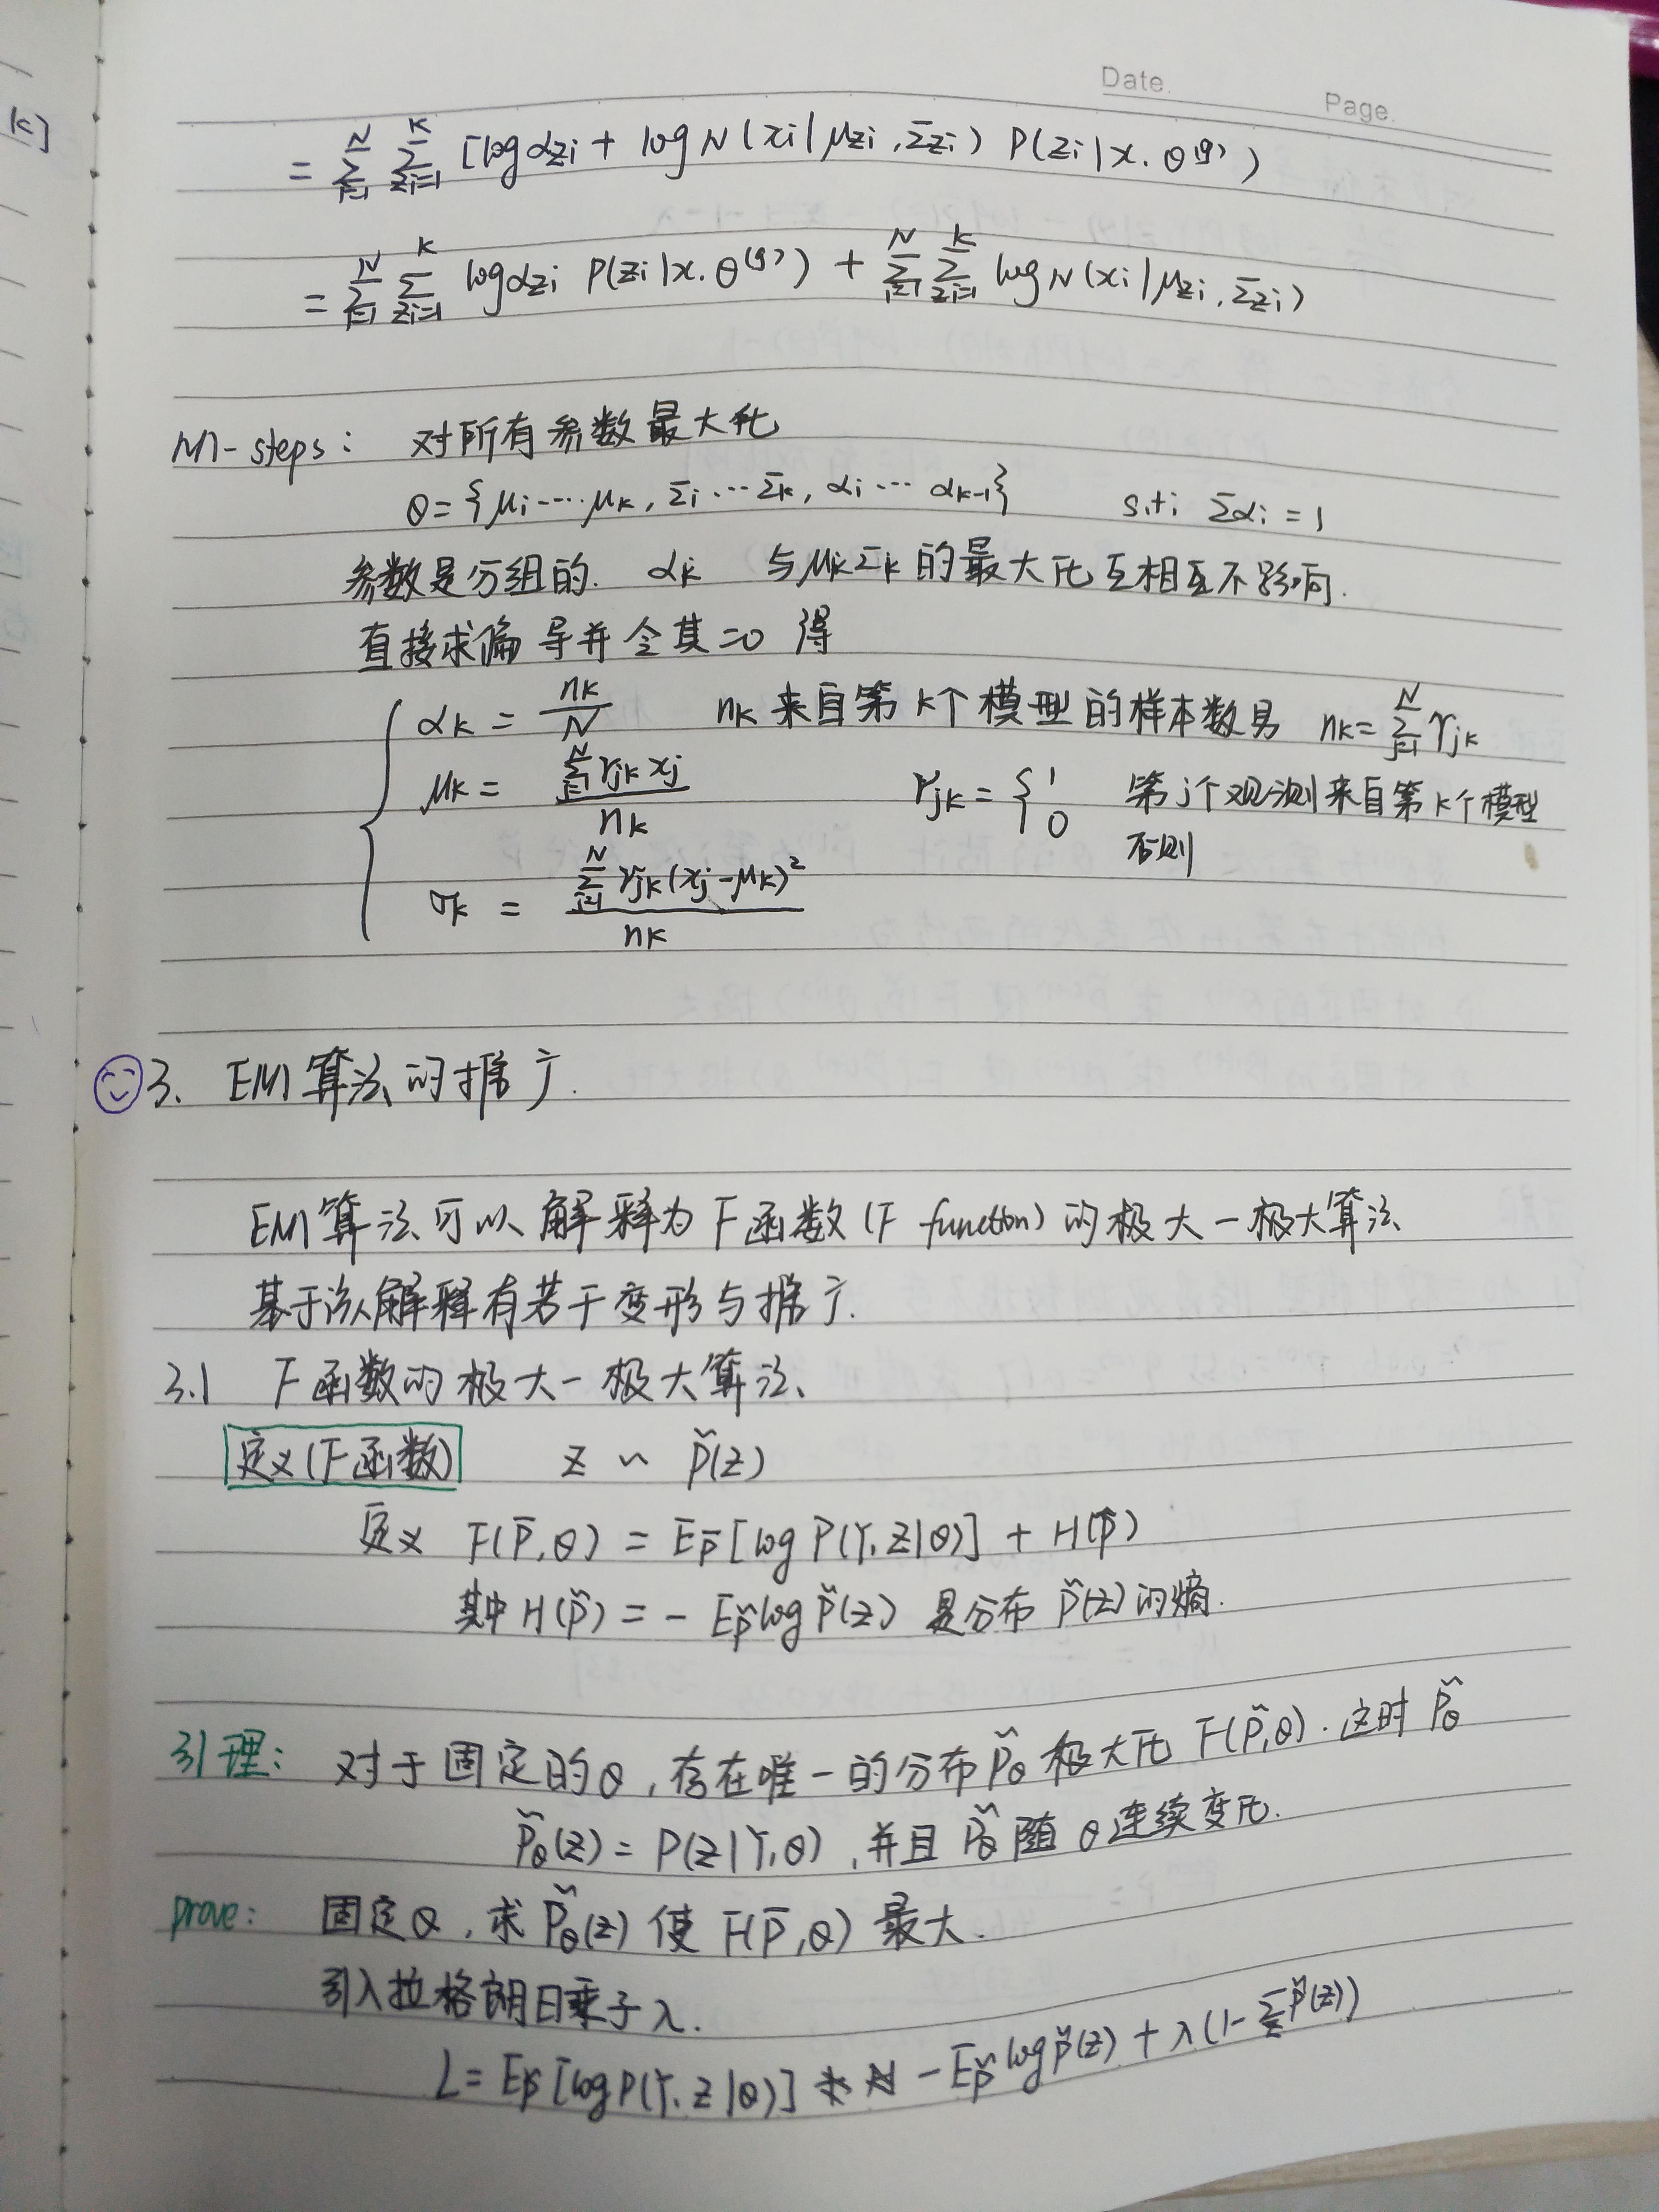 Date.
Page.
k]
= ∑_{i=1}^{N} ∑_{zi=1}^{K} [logαzi + logN(xi|μzi,Σzi) P(zi|x.θ^(g))
= ∑_{i=1}^{N} ∑_{zi=1}^{K} logαzi P(zi|x.θ^(g)) + ∑_{i=1}^{N} ∑_{zi=1}^{K} logN(xi|μzi,Σzi)
M-steps: 对所有参数最大化
θ={μi····μk,Σi···Σk,αi··· αk-1} s.t: Σαi=1
参数是分组的. αk 与μkΣk的最大化互相互不影响.
直接求偏导并令其=0 得
αk = nk/N nk来自第k个模型的样本数 nk=∑_{j=1}^{N} γjk
μk = ∑_{j=1}^{N} γjk xj / nk γjk={1 第j个观测来自第k个模型
0 否则
σk = ∑_{j=1}^{N} γjk(xj-μk)² / nk
3. EM算法的推广.
EM算法可以解释为F函数(F function)的极大-极大算法
基于该解释有若干变形与推广.
3.1 F函数的极大-极大算法
定义(F函数) Z ~ p̃(z)
定义 F(p̃,θ) = Ep̃[logP(Y,Z|θ)] + H(p̃)
其中H(p̃) = - Ep̃logp̃(z) 是分布p̃(z)的熵.
引理: 对于固定的θ,存在唯一的分布p̃θ极大化F(p̃,θ).这时p̃θ
p̃θ(z) = P(z|Y,θ),并且p̃θ随θ连续变化.
prove: 固定θ,求p̃θ(z)使F(p̃,θ)最大.
引入拉格朗日乘子λ.
L= Ep̃[logP(Y,Z|θ)] -Ep̃logp̃(z) + λ(1-∑_{z}p̃(z))